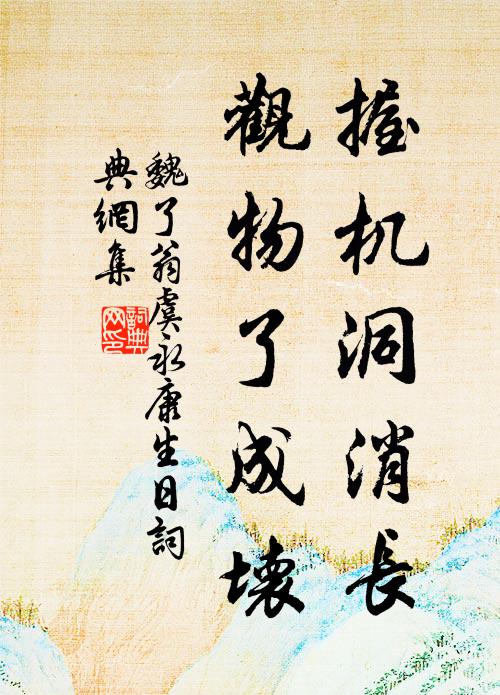 握机洞消長
觀物了成壞
魏了翁虞永康生日詞
典網集
詞典网印